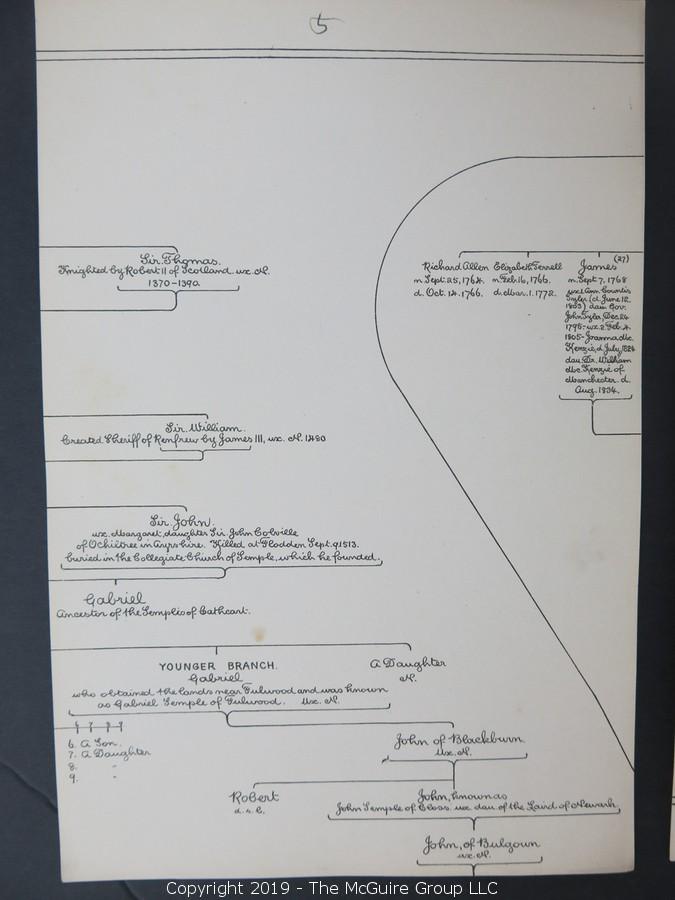 5
Sir Thomas.
Knighted by Robert II of Scotland. ux. N.
1370-1390.
Richard Allen
n Sept. 25, 1764.
d. Oct. 14. 1766.
Elizabeth Terrell
n. Feb. 16, 1766.
d. Mar. 1. 1772.
James (27)
n. Sept 7, 1768
ux. 1 Ann Countis
Tyler (d. June 12
1803) dau. Gov.
John Tyler. Dec. 24
1795 - ux. 2. Feb. 4
1805 - Joanna Mc.
Kenzie, d July, 1824
dau. Dr. William
Mc. Kenzie of
Manchester. d.
Aug. 1834.
Sir William.
Created Sheriff of Renfrew by James III, ux. N. 1480
Sir John.
ux. Margaret, daughter Sir John Colville
of Ochiltree in Ayrshire. Killed at Flodden Sept. 9, 1513.
Buried in the Collegiate Church of Semple, which he founded.
Gabriel
Ancestor of the Semples of Cathcart.
YOUNGER BRANCH.
Gabriel
who obtained the lands near Fulwood and was known
as Gabriel Semple of Fulwood. Ux. N.
A Daughter
N.
6 7 8 9
6. A Son.
7. A Daughter
8. "
9. "
John of Blackburn.
Ux. N.
Robert
d. s. l.
John, known as
John Semple of Closs. ux dau of the Laird of Newark.
John, of Bulgoun
ux. N.
Copyright 2019 - The McGuire Group LLC